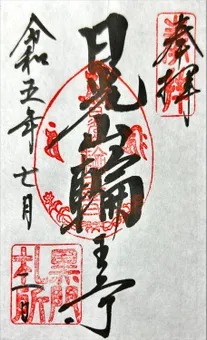 奉拝
日光山輪王寺
令和五年七月
黒門
札所